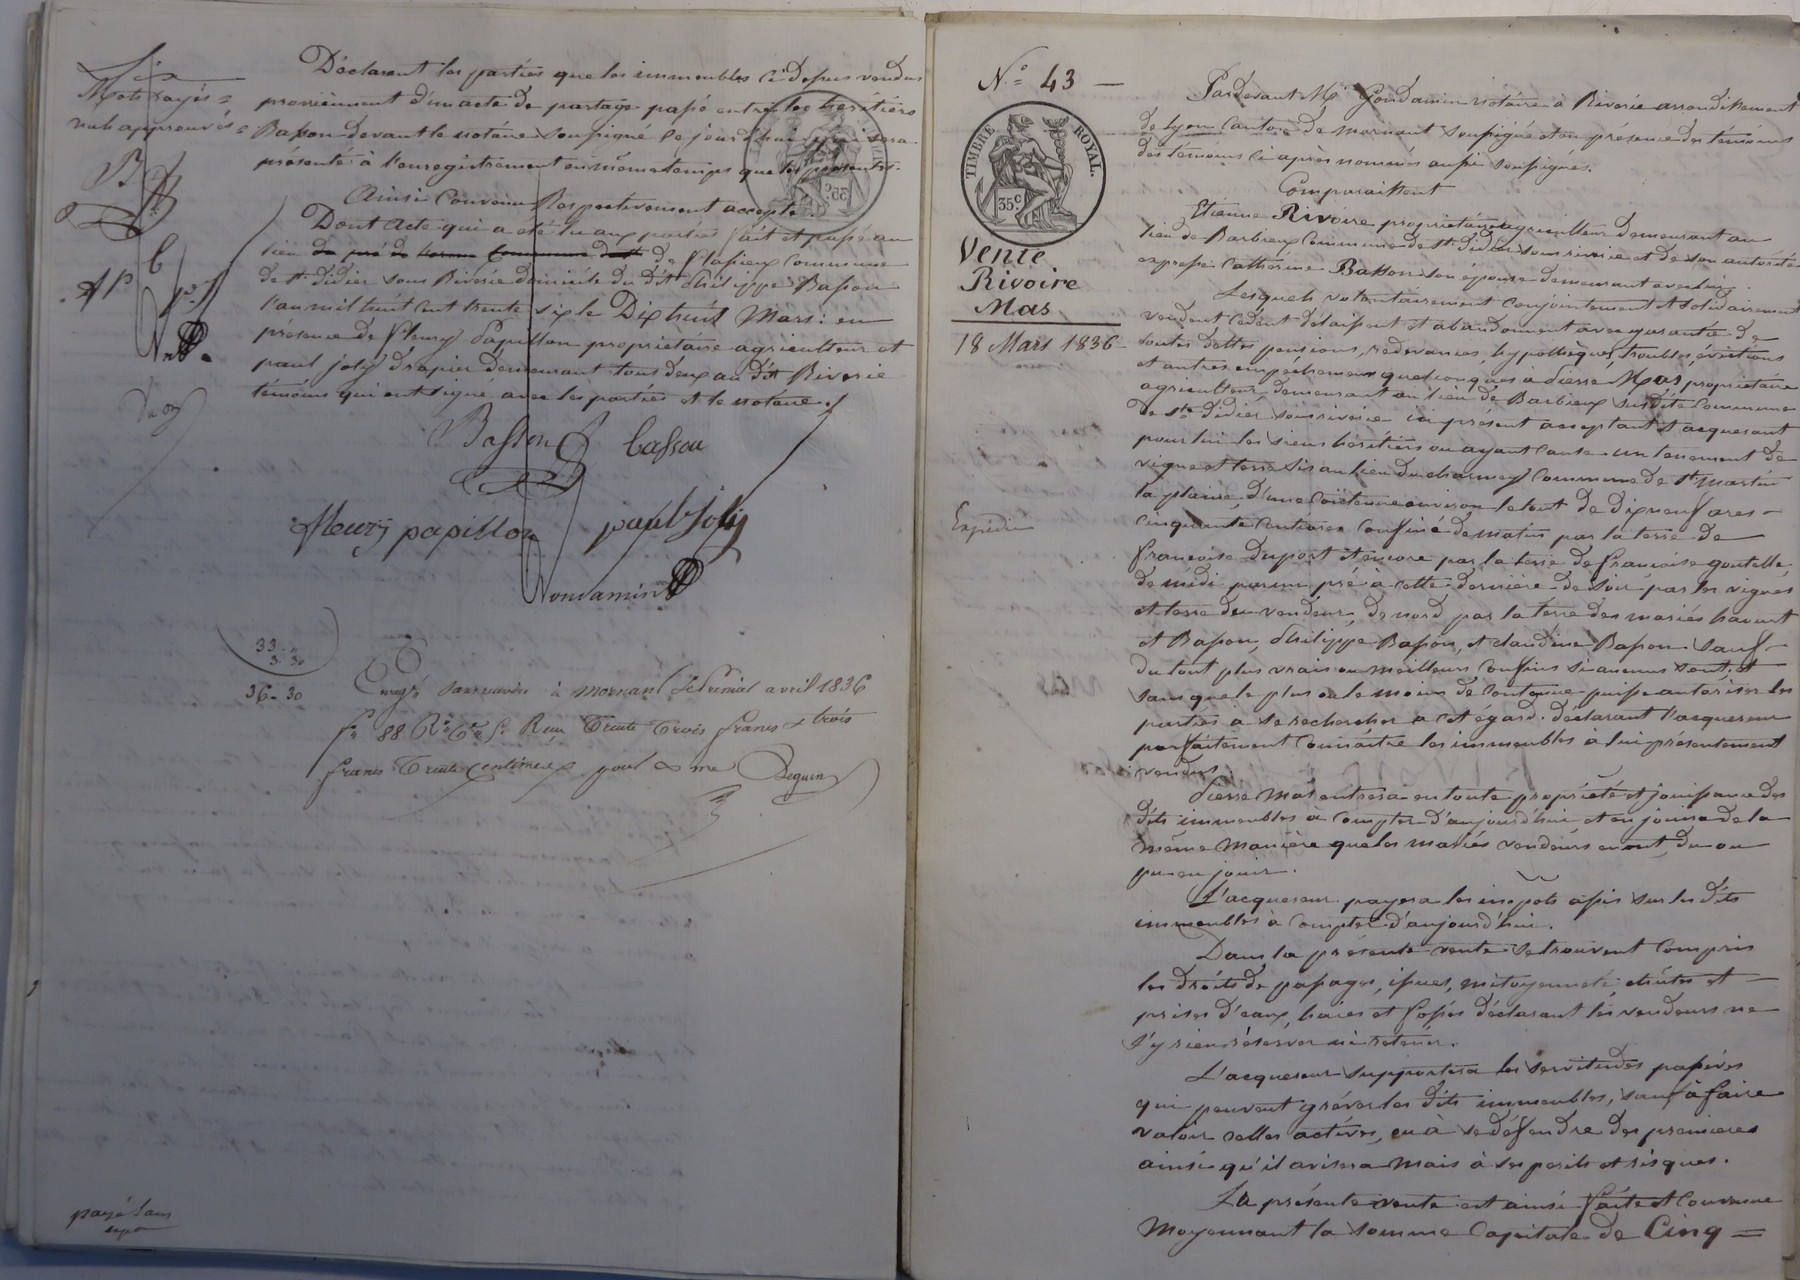 Mots rayés =
nuls approuvés =
Déclarant les parties que les immeubles ci dessus vendus
proviennent d'un acte de partage passé entre les héritiers
Basson devant le notaire soussigné ce jourd'hui qui sera
présenté à l'enregistrement en même temps que les présentes.
Ainsi Convenu Respectivement accepté
Dont Acte qui a été lu aux parties fait et passé au
lieu de Plasieux Commune
de St didier sous Riverie domicile du dit Philippe Basson
l'an mil huit cent trente six le Dix huit Mars : en
presence de fleury Papillon propriétaire agriculteur et
paul joly drapier demeurant tous deux au dit Riverie
témoins qui ont signé avec les parties et le notaire.
Basson basson
fleury papillon paul joly
Gondamin
33. "
3. 30
36. 30
Enregé à Mornant le Premier avril 1836
fo 88 Ro Reçu Trente Trois francs & trois
francs Trente Centimes pour
payé sans
expon
No = 43 —
TIMBRE ROYAL.
35c
Vente
Rivoire
Mas
18 Mars 1836 —
Expédié
Pardevant Me Gondamin notaire à Riverie arrondissement
de Lyon Canton de Mornant soussigné et en présence des témoins
des témoins ci après nommés aussi soussignés.
Comparaissent
Etienne Rivoire propriétaire agriculteur demeurant au
lieu de Barbieux Commune de St didier sous riverie et de son autorité
expresse Catherine Basson son épouse demeurant avec lui.
Lesquels volontairement Conjointement et solidairement
vendent cèdent délaissent et abandonnent avec garantie de
toutes dettes pensions, redevances, hypothèques, troubles, évictions
et autres empêchemens quelconques à Pierre Mas, propriétaire
agriculteur demeurant au lieu de Barbieux susdite Commune
de St didier sous riverie ici présent acceptant et acquérant
pour lui les siens héritiers ou ayant Cause un tenement de
vigne et terre sis au lieu du charmey Commune de St Martin
la plaine, d'une Contenue environ le tout de dix neuf ares —
cinquante Centiares Confiné de matin par la terre de
françoise duport et encore par la terre de francoise goutelle,
de midi par un pré à cette dernière de soir par les vignes
et terre du vendeur, de nord par la terre des mariés
et Basson, Philippe Basson, et claudine Basson sauf —
du tout plus vrais ou meilleurs Confins si aucuns sont, et
sans que le plus ou le moins de Contenue puisse autoriser les
parties à se rechercher à cet égard. déclarant l'acquereur
parfaitement Connaître les immeubles à lui présentement
vendus.
Pierre Mas entrera en toute propriété et jouissance des
dits immeubles à Compter d'aujourd'hui et en jouira de la
même manière que les mariés vendeurs en ont du ou
pu en jouir.
L'acquereur payera les impots assis sur les dits
immeubles à Compter d'aujourd'hui.
Dans la présente vente se trouvent Compris
les droits de passages, issues, mitoyenneté, chûtes et —
prises d'eaux, haies et fossés déclarant les vendeurs ne
s'y rien réserver ni retenir.
L'acquereur supportera les servitudes passives
qui peuvent grever les dits immeubles, sauf à faire
valoir celles actives, ou à se défendre des premieres
ainsi qu'il avisera mais à ses perils et risques.
La présente vente est ainsi faite et Convenue
Moyennant la somme Capitale de Cinq =